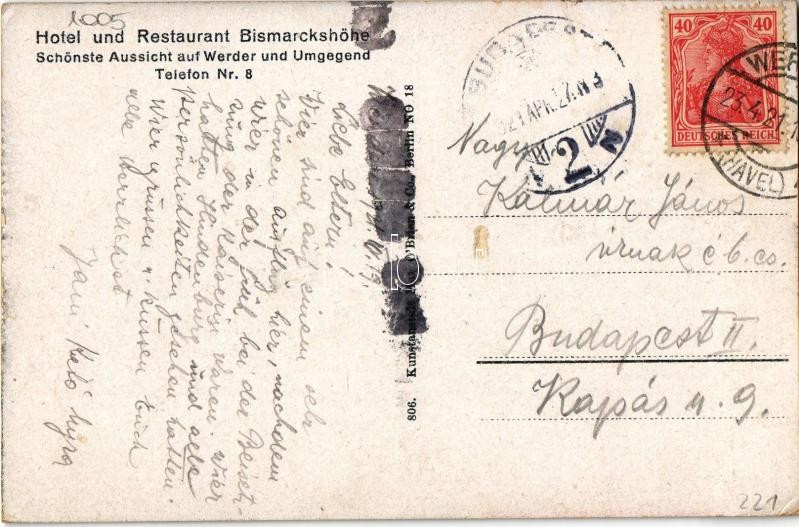 1005
Hotel und Restaurant Bismarckshöhe
Schönste Aussicht auf Werder und Umgegend
Telefon Nr. 8
Liebe Eltern!
Wier sind auf einem sehr
schönen Ausflug hier, nachdem
wier in der Früh bei der Beiset-
zung der Kaiserin waren. Wier
hatten Hindenburg und alle
persönlichkeiten gesehen hatten.
Wier grüssen u. küssen Euch
alle herzlichst
Jani
806. Kunstanstalt O'Brien & Co., Berlin NO 18
BUDAPEST
921 APR. 27. N 3
2
40 40
DEUTSCHES REICH
WER
23.4.21.1
(HAVEL)
Nagys.
Kalmár János
úrnak és b. cs.
Budapest II.
Kapás u. 9.
221